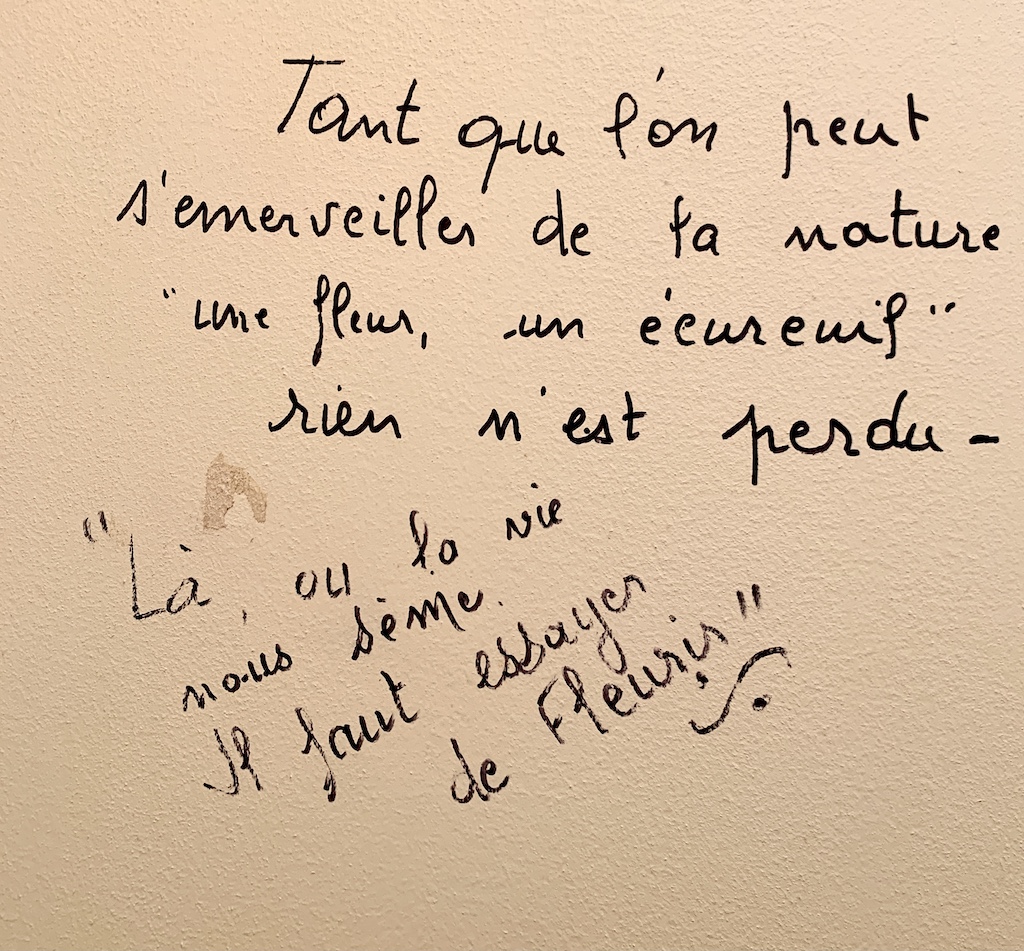 Tant que l'on peut
s'emerveiller de la nature
"une fleur, un écureuil"
rien n'est perdu -
"Là, ou la vie
nous sème.
Il faut essayer
de Fleurir"